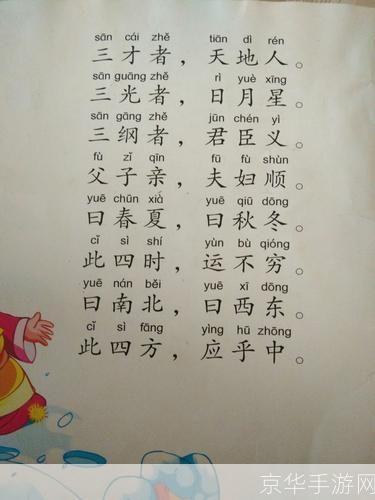 sān cái zhě tiān dì rén
三才者，天地人。
sān guāng zhě rì yuè xīng
三光者，日月星。
sān gāng zhě jūn chén yì
三纲者，君臣义。
fù zǐ qīn fū fù shùn
父子亲，夫妇顺。
yuē chūn xià yuē qiū dōng
曰春夏，曰秋冬。
cǐ sì shí yùn bù qióng
此四时，运不穷。
yuē nán běi yuē xī dōng
曰南北，曰西东。
cǐ sì fāng yìng hū zhōng
此四方，应乎中。
京华手游网